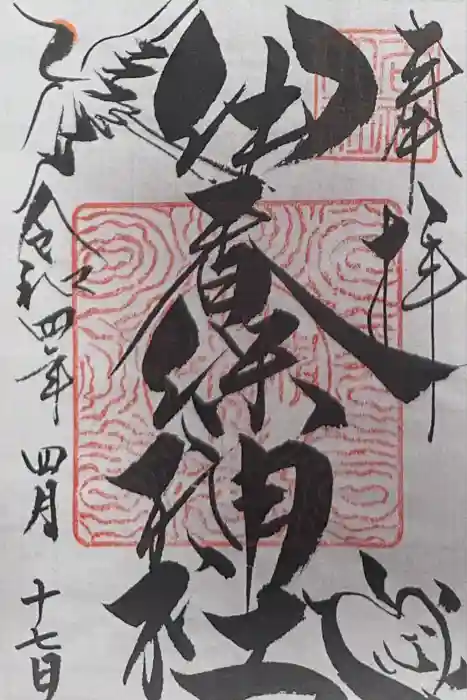 奉拝
伊香保神社
令和四年 四月 十七日